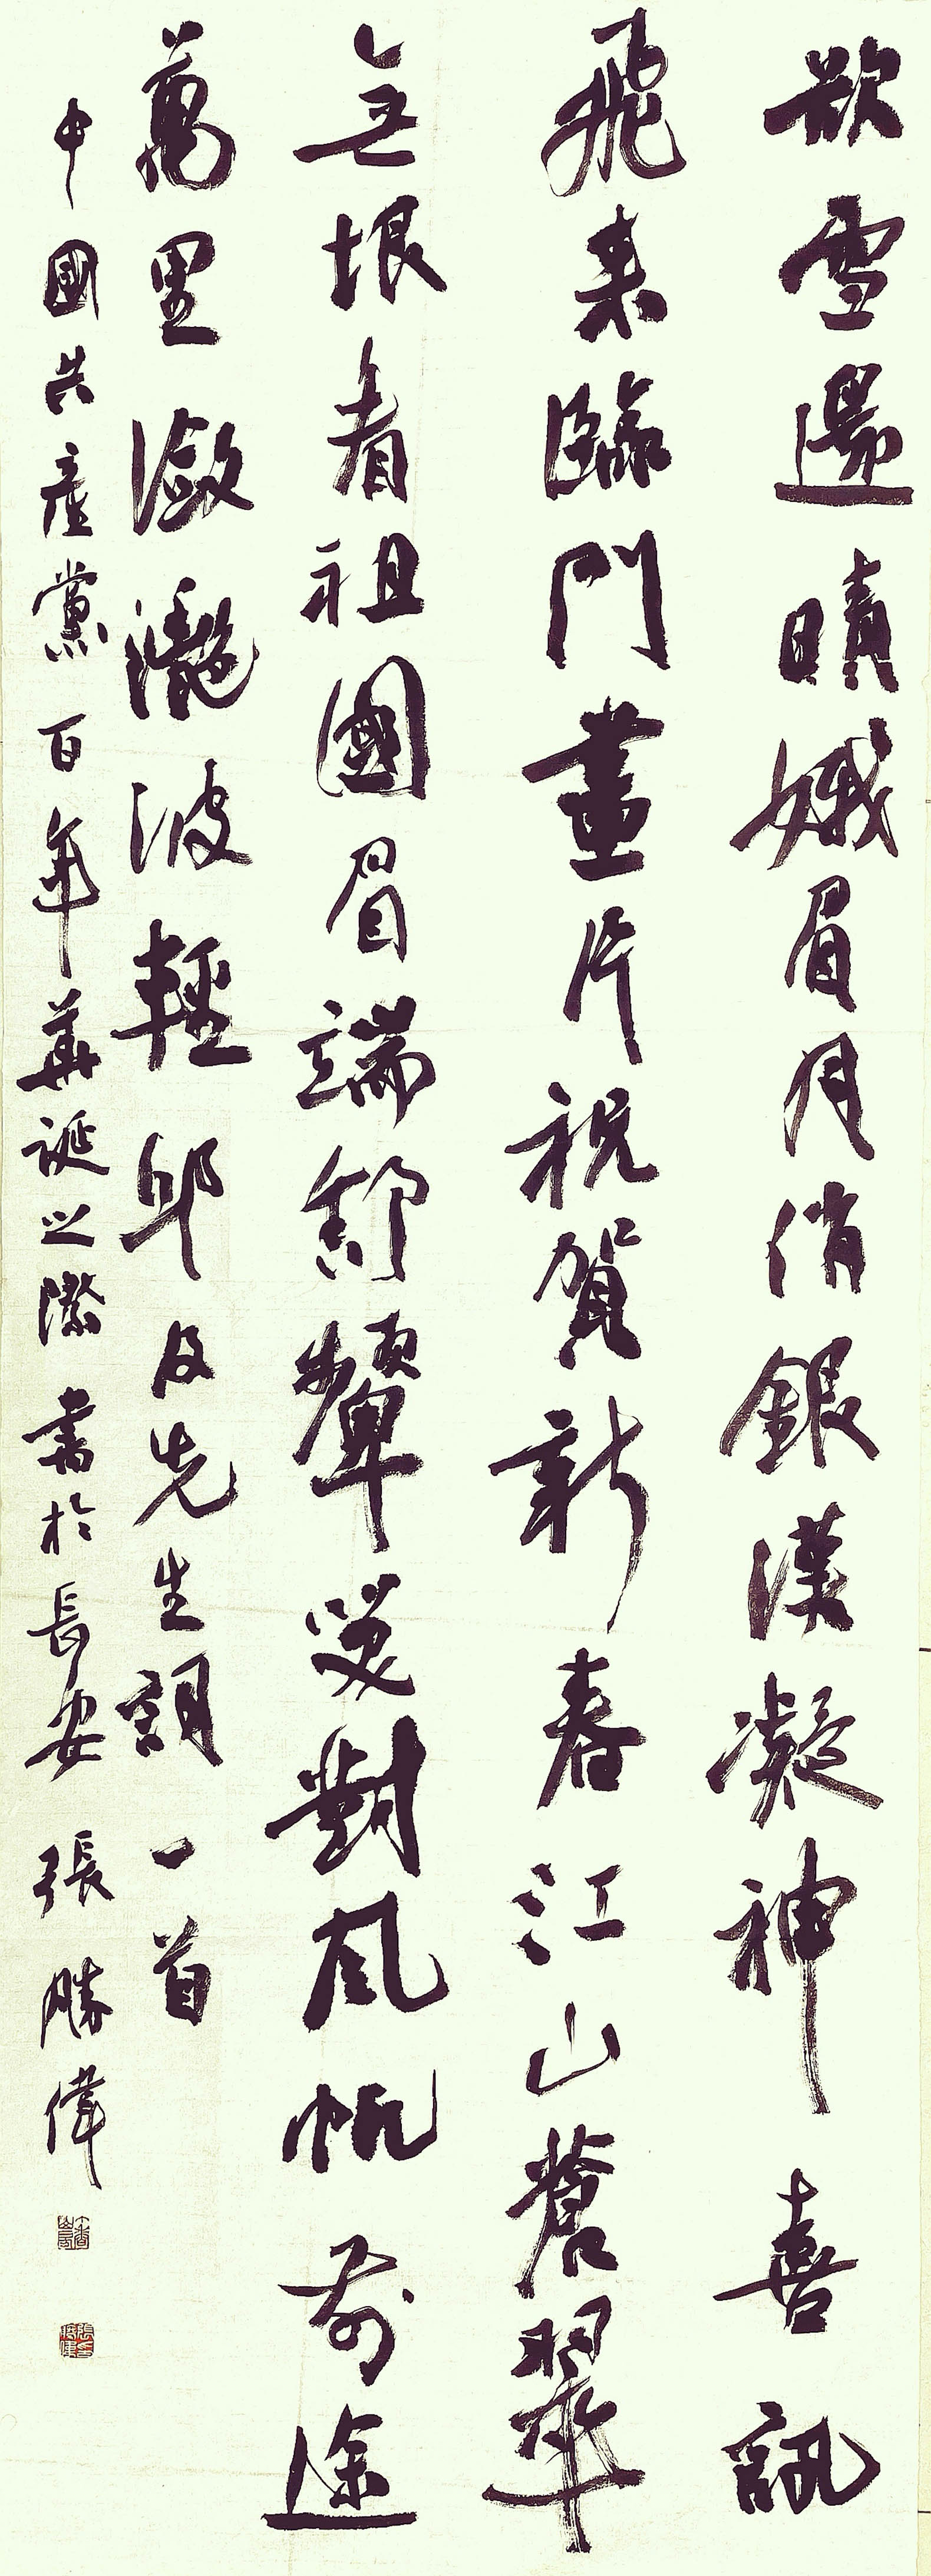 欲雪還晴娥眉月俏銀漢凝神喜訊
飛来臨門畫片祝賀新春江山蒼翠
無垠看祖國眉端舒顰笑對風帆前途
萬里瀲灔波輕邱及先生詞一首
中國共產黨百年華誕之際書於長安張勝偉